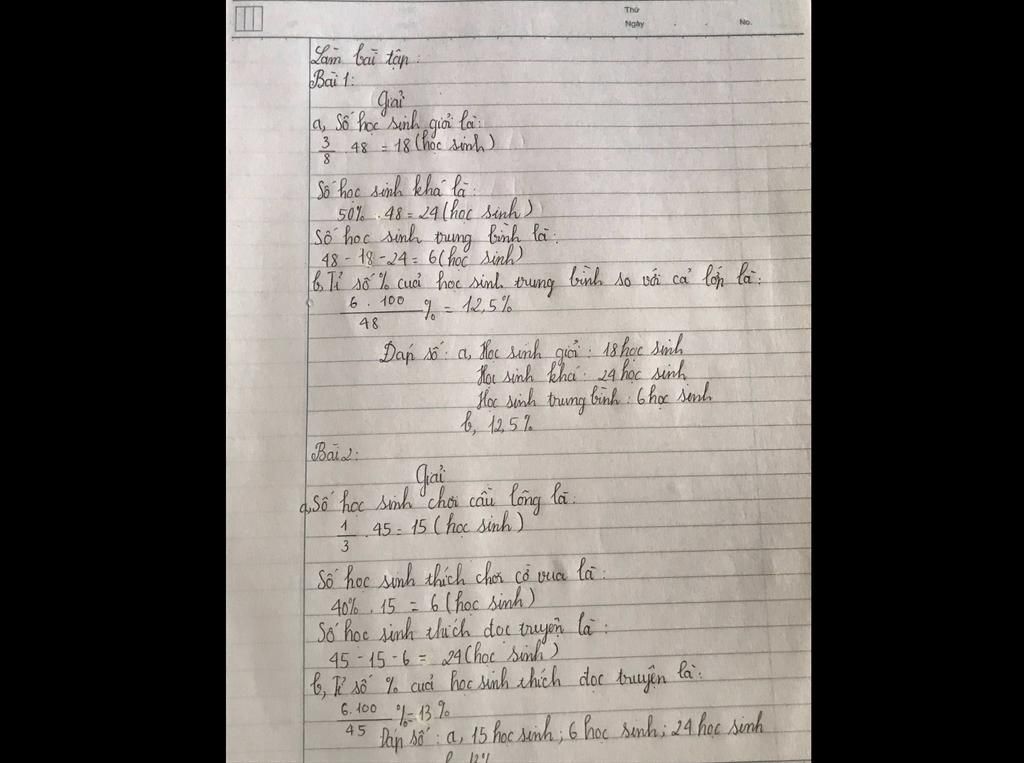 Thứ
Ngày . . No.
Làm bài tập:
Bài 1:
Giải
a, Số học sinh giỏi là:
3/8 . 48 = 18 (học sinh)
Số học sinh khá là:
50% . 48 = 24 (học sinh)
Số học sinh trung bình là:
48 - 18 - 24 = 6 (học sinh)
b, Tỉ số % cuả học sinh trung bình so với cả lớp là:
6 . 100/48 % = 12,5%
Đáp số: a, Học sinh giỏi: 18 học sinh
Học sinh khá: 24 học sinh
Học sinh trung bình: 6 học sinh
b, 12,5%
Bài 2:
Giải
a, Số học sinh chơi cầu lông là:
1/3 . 45 = 15 (học sinh)
Số học sinh thích chơi cờ vua là:
40% . 15 = 6 (học sinh)
Số học sinh thích đọc truyện là:
45 - 15 - 6 = 24 (học sinh)
b, Tỉ số % cuả học sinh thích đọc truyện là:
6.100/45 % = 13%
Đáp số: a, 15 học sinh; 6 học sinh; 24 học sinh